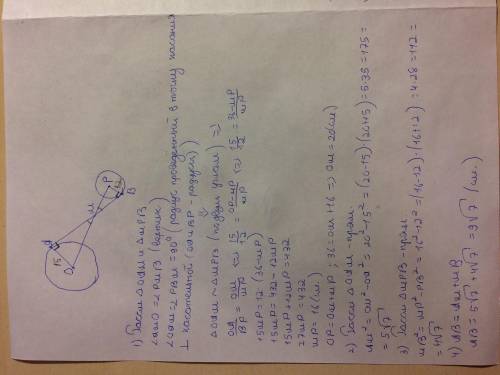 O
15
A
M
P
12
B
1) Рассм ΔOAM и ΔMPB
∠AMO = ∠PMB (вертик)
∠OAM = ∠PBM = 90° (радиус проведенный в точку касания
⊥ касательной (OA и BP - радиусы))
⇓
ΔOAM ~ ΔMPB (по двум углам) ⇒
OA/BP = OM/MP ⇔ 15/12 = OP-MP/MP ⇔ 15/12 = 36-MP/MP
15MP = 12·(36-MP)
15MP = 432 - 12MP
15MP + 12MP = 432
27MP = 432
MP = 16 (см)
OP = OM + MP = 36 = OM + 16 ⇒ OM = 20 (см)
2) Рассм ΔOAM - прям.
AM² = OM² - OA² = 20² - 15² = (20-15)·(20+15) = 5·35 = 175 =
= 5√7
3) Рассм ΔMPB - прям.
MB² = MP² - PB² = 16² - 12² = (16-12)·(16+12) = 4·28 = 112 =
= 4√7
4) AB = AM + MB
AB = 5√7 + 4√7 = 9√7 (см)